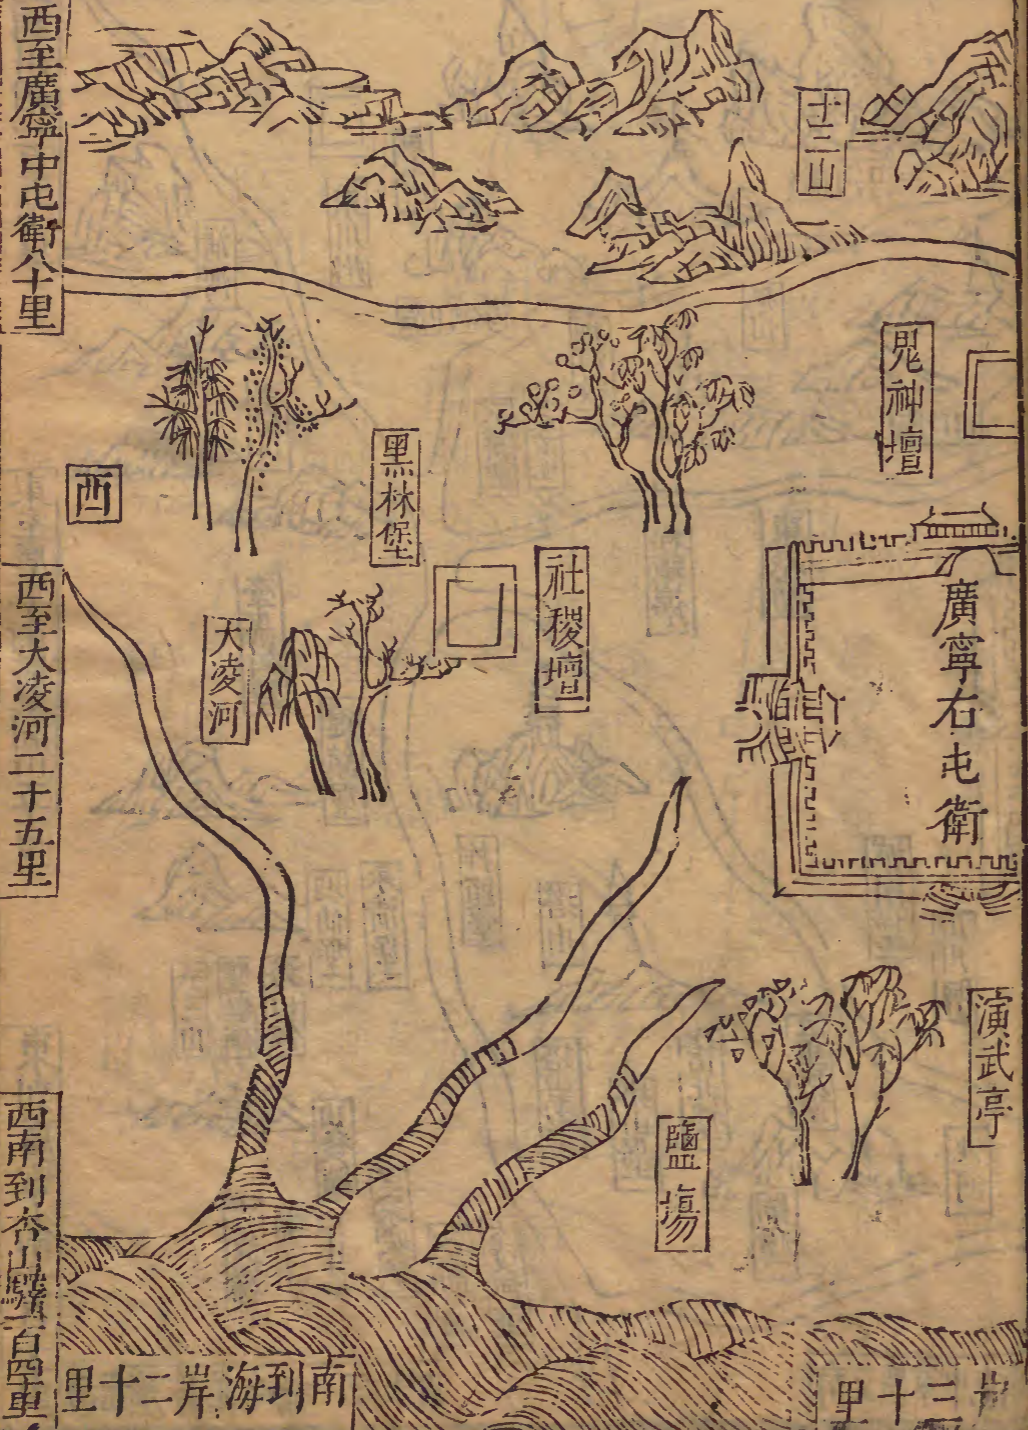 十三山
鬼神壇
廣寧右屯衛
演武亭
社稷壇
黑林堡
大凌河
鹽塲
西
西至廣寧中屯衛八十里
西至大凌河二十五里
西南到杏山驛
岸三十里
南到海岸二十里